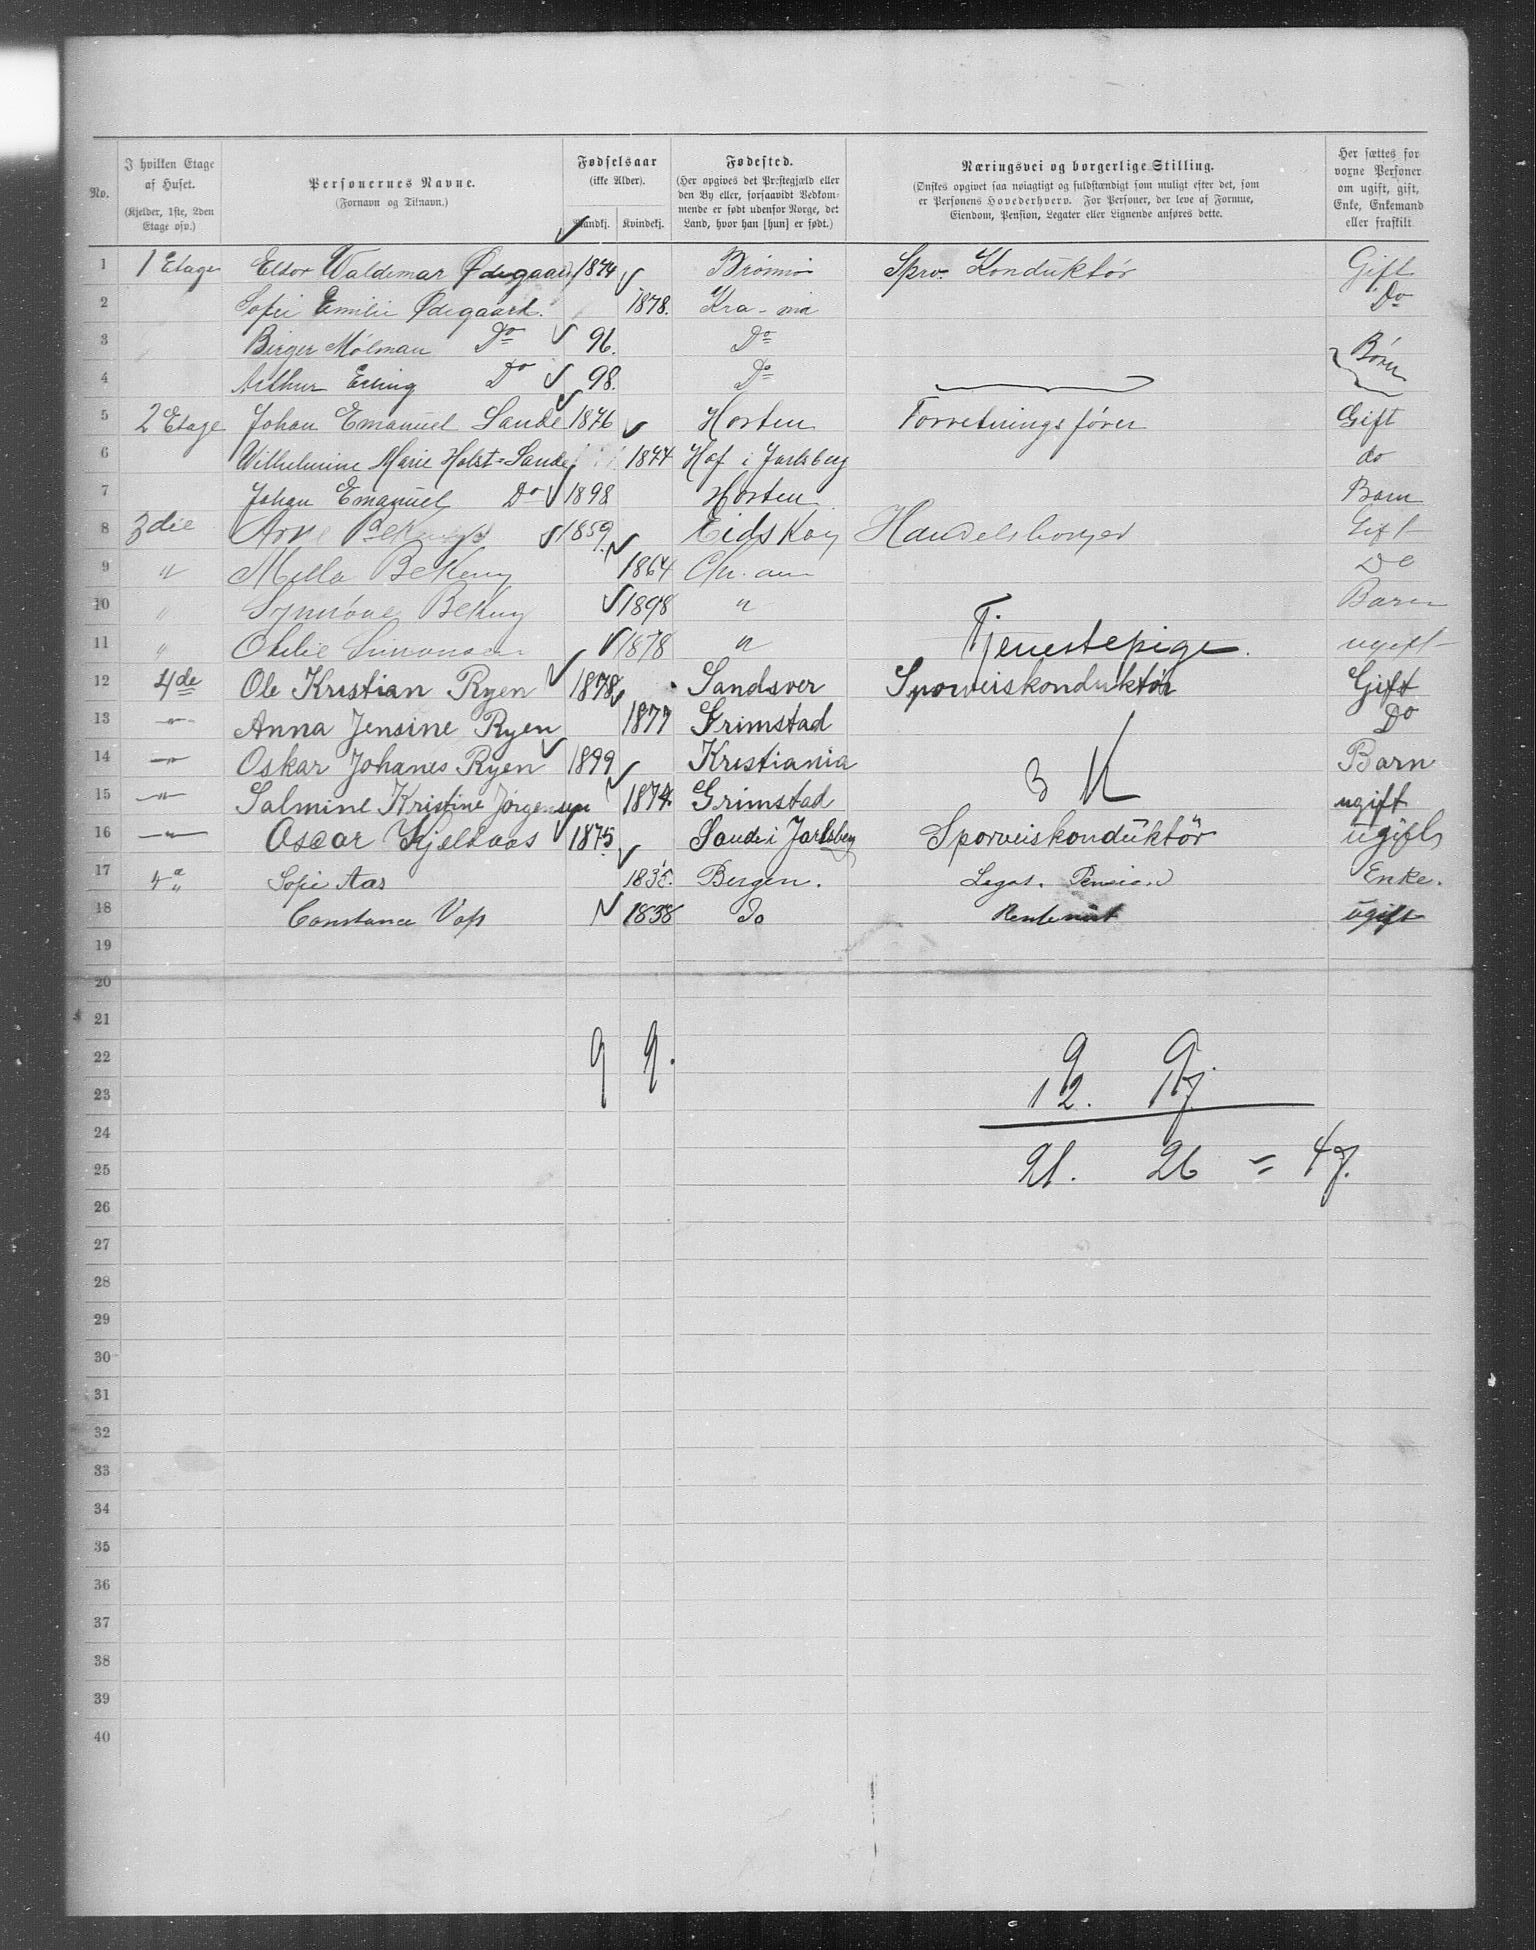 No. | I hvilken Etage af Huset. (Kjelder, 1ste, 2den Etage osv.) | Personernes Navne. (Fornavn og Tilnavn.) | Fødselsaar (ikke Alder). Mandkj. Kvindekj. | Fødested. (Her opgives det Præstegjæld eller den By eller, forsaavidt Vedkommende er født udenfor Norge, det Land, hvor han [hun] er født.) | Næringsvei og borgerlige Stilling. (Ønskes opgivet saa nøiagtigt og fuldstændigt som muligt efter det, som er Personens Hovederhverv. For Personer, der leve af Formue, Eiendom, Pension, Legater eller Lignende anføres dette. | Her sættes for voxne Personer om ugift, gift, Enke, Enkemand eller fraskilt
1 1 Etage Eldor Waldemar Ødegaard 1874 Brømnø Sprv. Konduktør Gift
2 Sofie Emilie Ødegaard. 1878. Kra-nia Do
3 Birger Mølman Do 96. Do Børn
4 Arthur Erling Do 98. Do
5 2 Etage Johan Emanuel Sande 1876 Horten Forretningsfører Gift
6 Wilhelmine Marie Holst-Sande 1874 Hof i Jarlsberg do
7 Johan Emanuel Do 1898 Horten Barn
8 3die Arne 1859 Eidskog Handelsborger Gift
9 " Milla 1864 Chr. Do
10 " Synnøve 1898 " Barn
11 " Othilie Simonsen 1878 " Tjenestepige. ugift
12 4de Ole Kristian Ryen 1878 Sandsver Sporveiskonduktør Gift
13 -"- Anna Jensine Ryen 1877 Grimstad Do
14 -"- Oskar Johanes Ryen 1899 Kristiania 3 Barn
15 -"- Salmine Kristine Jørgensen 1874 Grimstad ugift
16 -"- Oscar Kjelsaas 1875 Sande i Jarlsberg Sporveiskonduktör ugift
17 4 " Sofie Aas 1835. Bergen. Legat. Pension Enke.
18 Constance Voss 1838 do Rentenist ugift
19
20
21
22 9 9. 9 9.
23 12. 17.
24
25 21. 26 = 47.
26
27
28
29
30
31
32
33
34
35
36
37
38
39
40